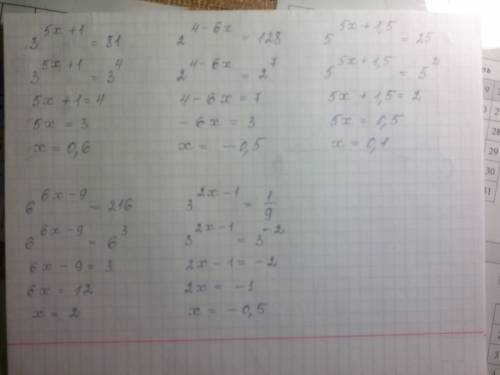 3^{5x+1} = 81
3^{5x+1} = 3^4
5x+1=4
5x = 3
x = 0,6
2^{4-6x} = 128
2^{4-6x} = 2^7
4-6x = 7
-6x = 3
x = -0,5
5^{5x+1,5} = 25
5^{5x+1,5} = 5^2
5x+1,5=2
5x = 0,5
x = 0,1
6^{6x-9} = 216
6^{6x-9} = 6^3
6x-9=3
6x = 12
x = 2
3^{2x-1} = 1/9
3^{2x-1} = 3^{-2}
2x-1=-2
2x = -1
x = -0,5
29
30
31